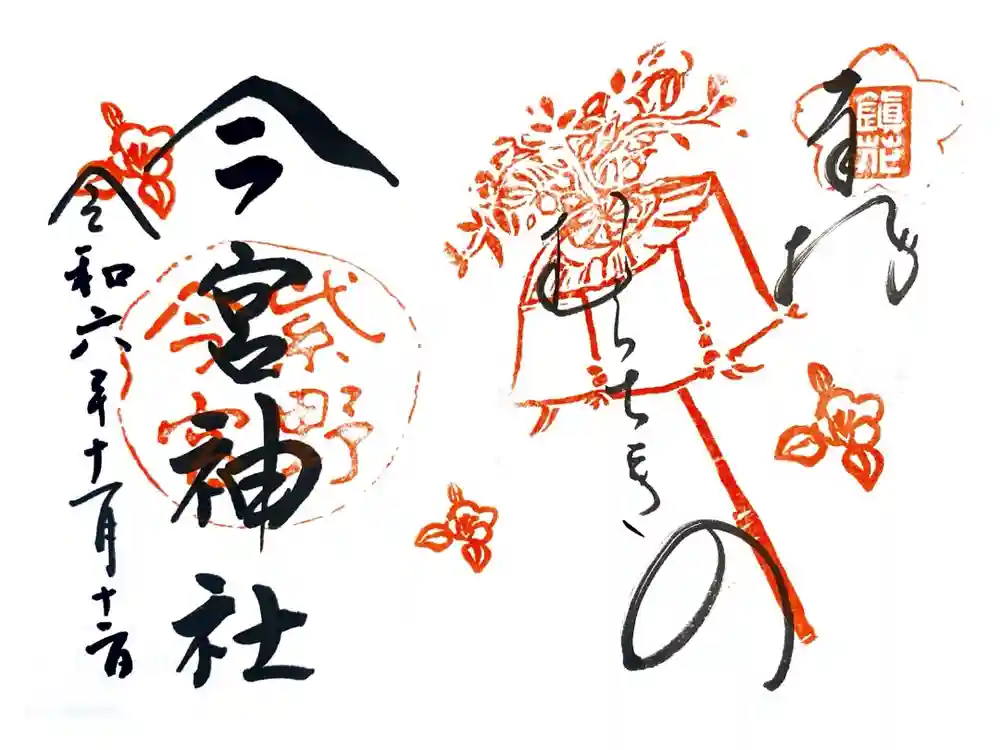 鎮花
むらさきの
紫野
今宮
今宮神社
令和六年十一月十二日